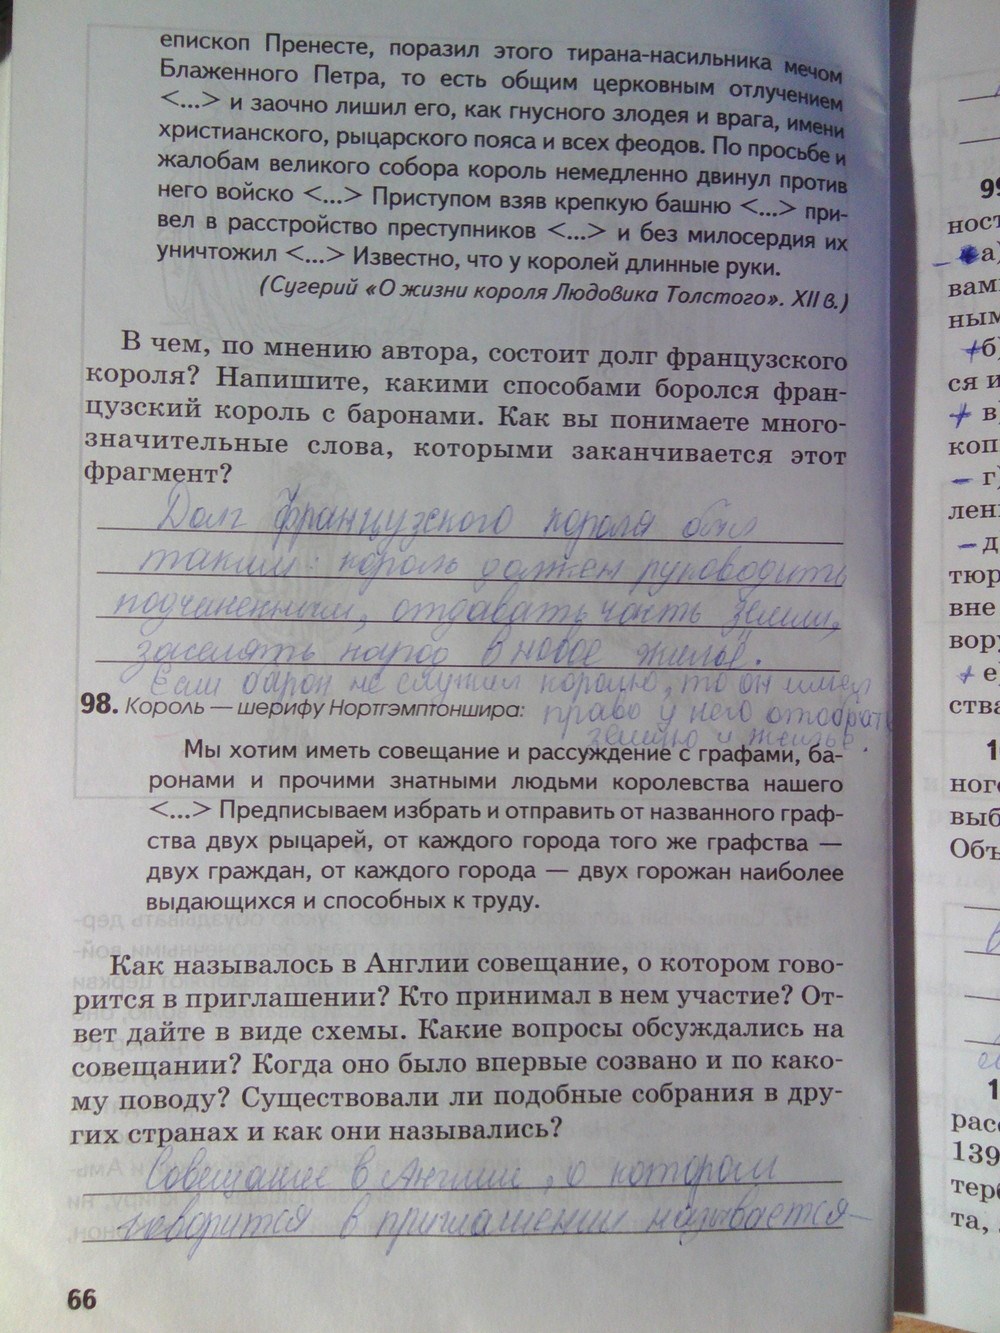 епископ Пренесте, поразил этого тирана-насильника мечом
Блаженного Петра, то есть общим церковным отлучением
<...> и заочно лишил его, как гнусного злодея и врага, имени
христианского, рыцарского пояса и всех феодов. По просьбе и
жалобам великого собора король немедленно двинул против
него войско <...> Приступом взяв крепкую башню <...> при-
вел в расстройство преступников <...> и без милосердия их
уничтожил <...> Известно, что у королей длинные руки.
(Сугерий «О жизни короля Людовика Толстого». XII в.)
В чем, по мнению автора, состоит долг французского
короля? Напишите, какими способами боролся фран-
цузский король с баронами. Как вы понимаете много-
значительные слова, которыми заканчивается этот
фрагмент?
Долг французского короля был
таким: король должен руководить
подчиненными, отдавать часть земли,
заселять народ в новое жильё.
Если барон не служил королю, то он имел
право у него отобрать
землю и жильё.
98. Король — шерифу Нортгэмптоншира:
Мы хотим иметь совещание и рассуждение с графами, ба-
ронами и прочими знатными людьми королевства нашего
<...> Предписываем избрать и отправить от названного граф-
ства двух рыцарей, от каждого города того же графства —
двух граждан, от каждого города — двух горожан наиболее
выдающихся и способных к труду.
Как называлось в Англии совещание, о котором гово-
рится в приглашении? Кто принимал в нем участие? От-
вет дайте в виде схемы. Какие вопросы обсуждались на
совещании? Когда оно было впервые созвано и по како-
му поводу? Существовали ли подобные собрания в дру-
гих странах и как они назывались?
Совещание в Англии, о котором
говорится в приглашении называется-
66
ност
а)
вами
ным
+б)
ся и
+ в
коп
- г)
лен
- д
тюр
вне
вору
+ е
ства
ного
выб
Объ
расс
139
тер
та,